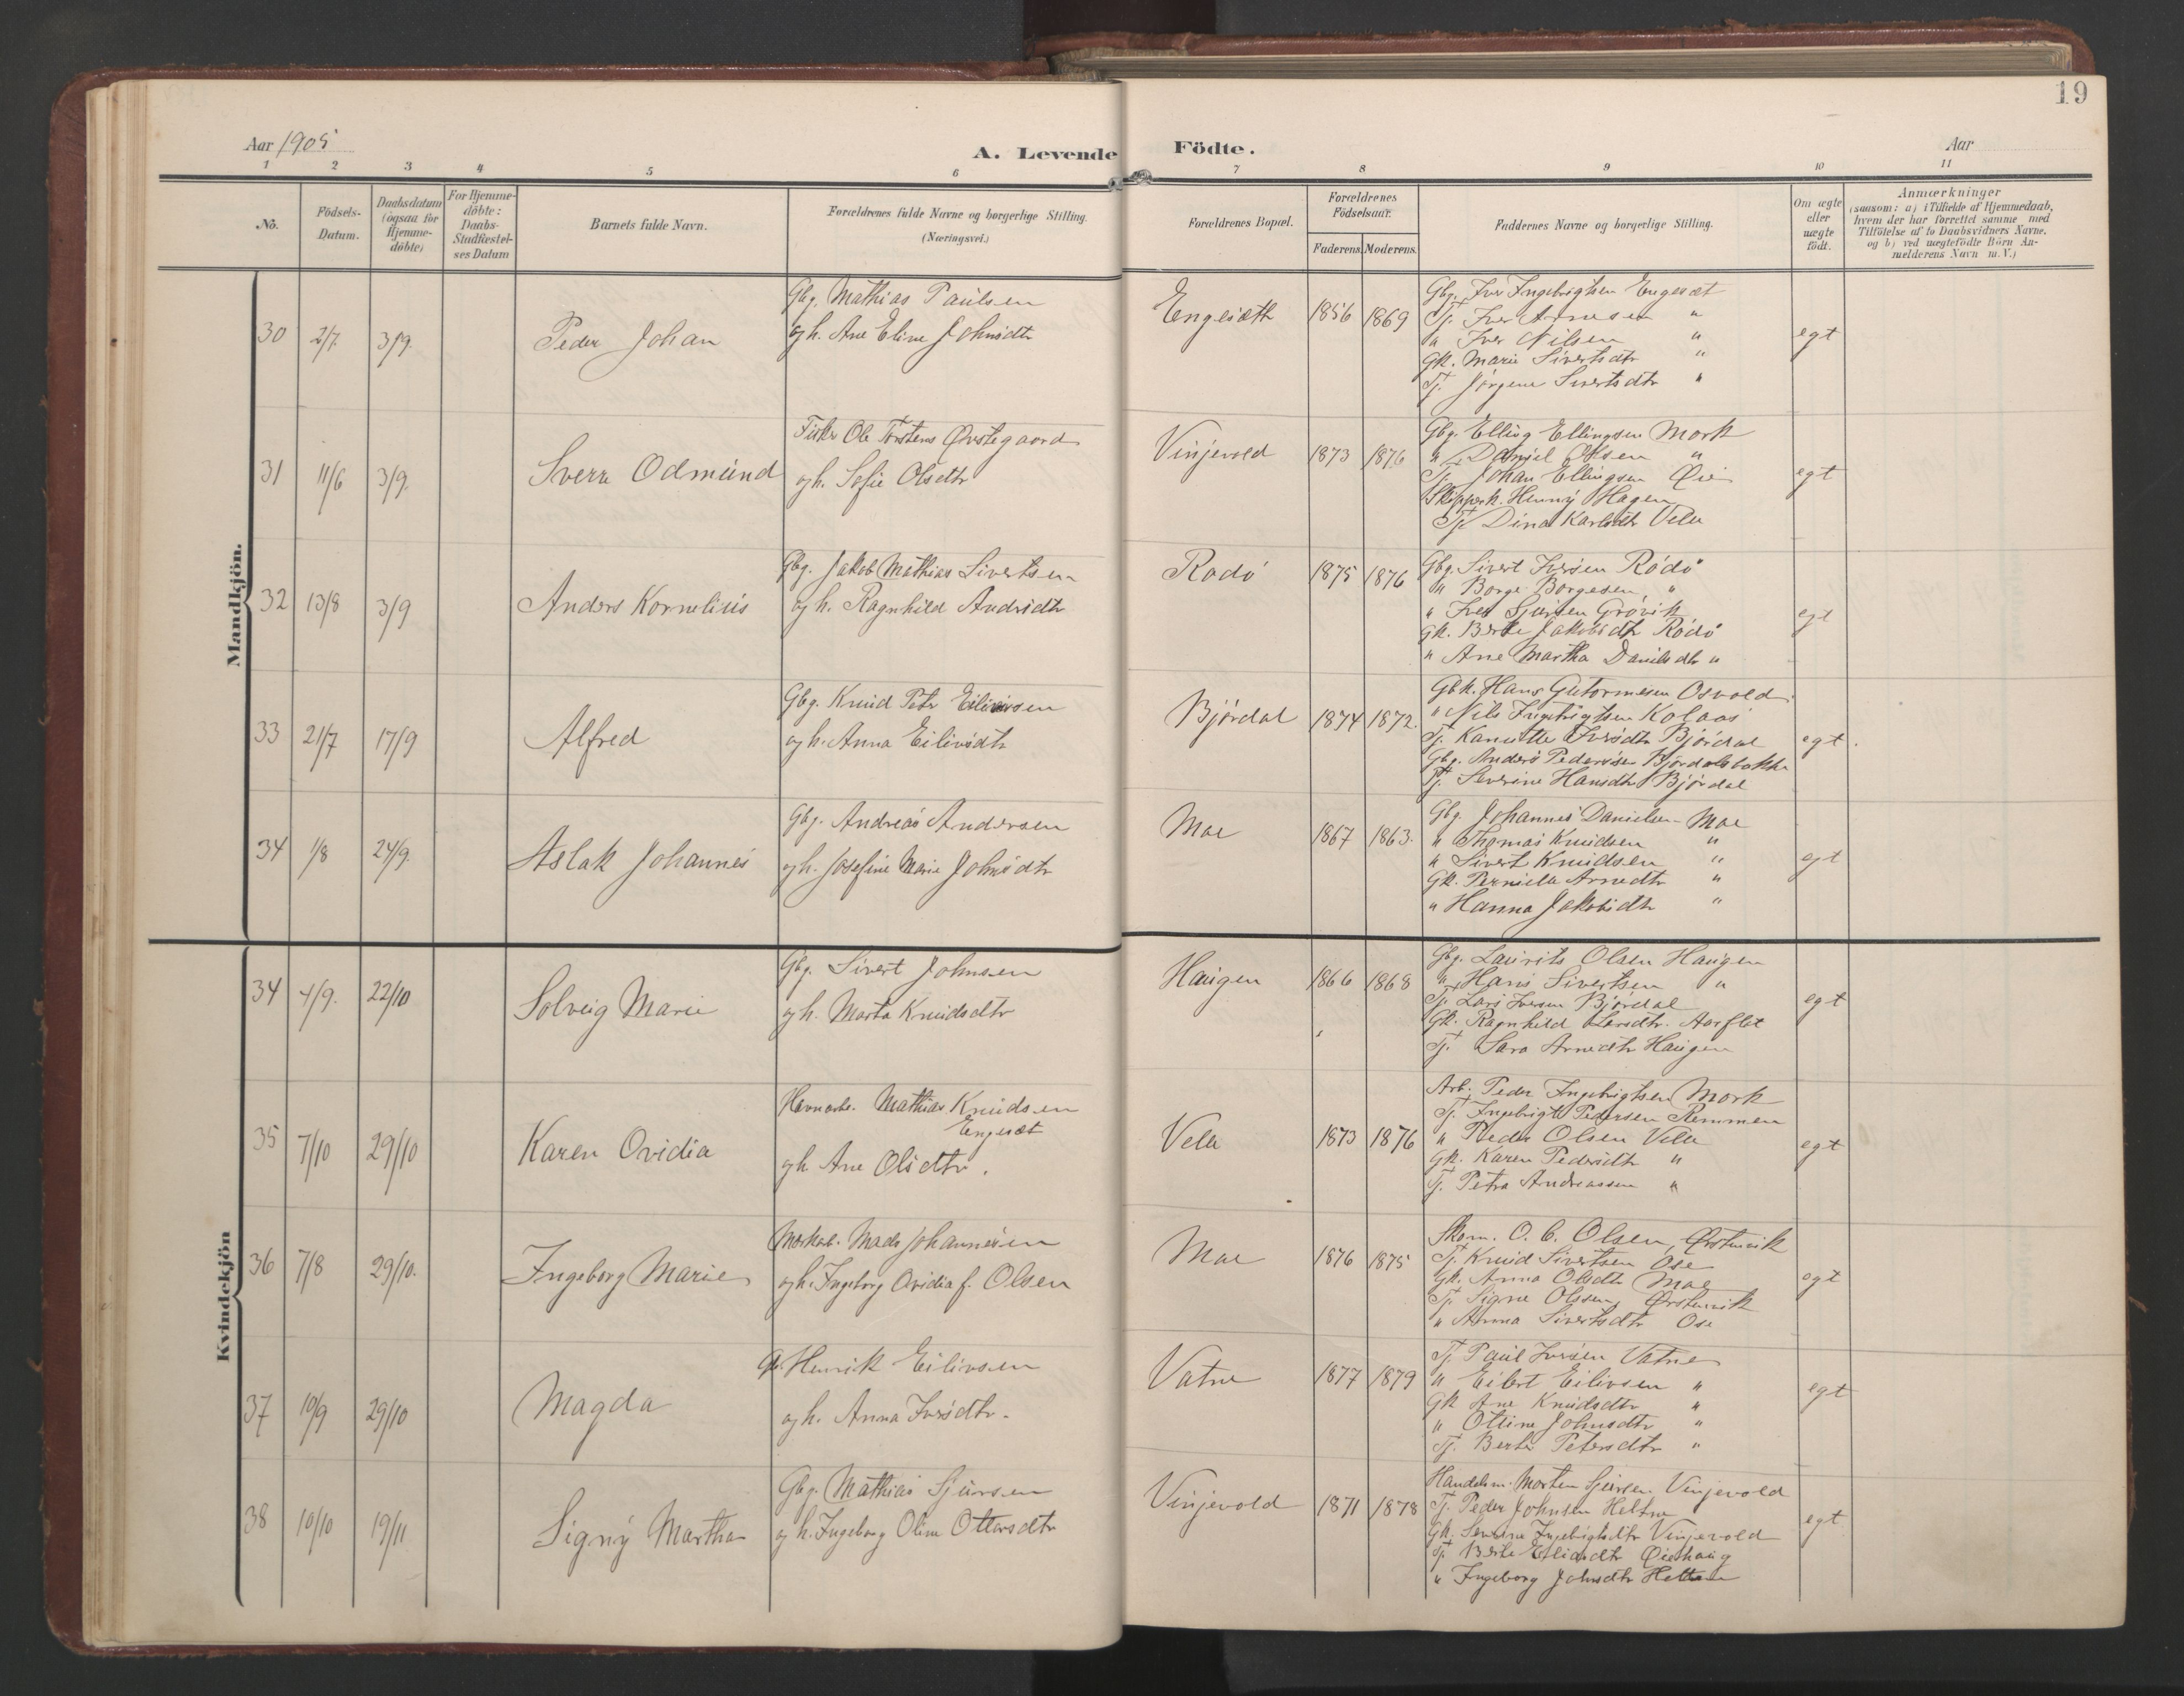 19
Aar 1905
A. Levende Födte.
Aar
1 2 3 4 5 6 7 8 9 10 11
No.
Födsels-
Datum.
Daabsdatum
(ogsaa for
Hjemme-
döbte)
For Hjemme-
döbte:
Daabs-
Stadfæstel-
ses Datum
Barnets fulde Navn.
Forældrenes fulde Navne og borgerlige Stilling.
(Næringsvei.)
Forældrenes Bopæl.
Forældrenes
Födselsaar.
Faderens. Moderens.
Faddernes Navne og borgerlige Stilling.
Om ægte
eller
uægte
födt.
Anmærkninger
(saasom: a) i Tilfælde af Hjemmedaab,
hvem der har forrettet samme med
Tilföielse af to Daabsvidners Navne,
og b) ved uægtefödte Börn An-
melderens Navn m. V.)
Mandkjön.
30 2/7. 3/9. Peder Johan
Gbg. Mathias Paulsen
og h. Ane Eline Johnsdtr
Engesæth 1856 1869
Gbg. Iver Ingebrigtsen Engesæt
Tj. Iver Arnesen "
" Iver Nilsen "
Gk. Marie Sivertsdtr "
Tj. Jørgine Sivertsdtr "
egt
31 11/6 3/9. Sverre Odmund
Fisker Ole Torstens Øvstegaard
og h. Sofie Olsdtr
Vinjevold 1873 1876
Gbg. Elling Ellingsen Mork
" Daniel Olsen "
Tj. Johan Ellingsen Øie
Skipperk. Henny Hagen
Tj. Dina Karlsdtr Velle
egt
32 13/8 3/9 Anders Kornelius
Gbg. Jakob Mathias Sivertsen
og h. Ragnhild Andrsdtr
Rødø 1875 1876
Gbg. Sivert Iversen Rödö
" Borge Borgesen "
" Iver Sjursen Grøvik
Gk. Berte Jakobsdtr Rödö
" Ane Martha Danielsdtr "
egt
33 21/7 17/9 Alfred
Gbg. Knud Petr Eilivsen
og h. Anna Eilivsdtr
Bjørdal 1874 1872.
Gbk. Hans Guttormsen Osvold
" Nils Ingebrigtsen Kolaas
Tj. Kanutte Iversdtr Bjørdal
Gbg. Anders Pedersen Bjørdalsbakke
Tj. Severine Hansdtr Bjørdal
egt.
34 1/8 24/9. Aslak Johannes
Gbg. Andreas Andersen
og h. Josefine Marie Johnsdtr
Moe 1867 1863.
Gbg. Johannes Danielsen Moe
" Thomas Knudsen "
" Sivert Knudsen "
Gk. Pernille Arnedtr "
" Hanna Jakobsdtr "
egt
Kvindekjön
34 4/9. 22/10 Solveig Marie
Gbg. Sivert Johnsen
og h. Marta Knudsdtr
Haugen 1866 1868
Gbg. Laurits Olsen Haugen
" Hans Sivertsen "
Tj. Lars Iversen Bjørdal
Gk. Ragnhild Larsdtr. Aarflot
Tj. Sara Arnedtr Haugen
egt
35 7/10 29/10 Karen Ovidia
Havnarb. Mathias Knudsen
Engesæt
og h. Ane Olsdtr.
Velle 1873 1876
Arb. Peder Ingebrigtsen Mork
Tj. Ingebrigt Pedersen Remmen
" Peder Olsen Velle
Gk. Karen Pedersdtr "
Tj. Petra Andreassen "
egt
36 7/8 29/10. Ingeborg Marie
Mads Johannesen
og h. Ingeborg Ovidia f. Olsen
Moe 1876 1875
Skom. O. C. Olsen, Ørstenvik
Tj. Knud Sivertsen Ose
Gk. Anna Olsdtr Moe
Tj. Signe Olsen, Ørstenvik
" Anna Sivertsdtr Ose
egt
37 10/9 29/10 Magda
G. Henrik Eilivsen
og h. Anna Iversdtr.
Vatne 1877 1879
Tj. Paul Iversen Vatne
" Eilert Eilivsen "
Gk Ane Knudsdtr "
" Oline Johnsdtr "
Tj. Berte Petersdtr "
egt
38 10/10 19/11 Signy Martha
Gbg. Mathias Sjursen
og h. Ingeborg Oline Ottersdtr
Vinjevold 1871 1878
Handelsm. Morten Sjursen Vinjevold
Tj. Peder Johnsen Heltne
Gk. Severine Ingebrigtsdtr Vinjevold
Tj. Berte Eliasdtr Øiehaug
" Ingeborg Johnsdtr Heltne
egt